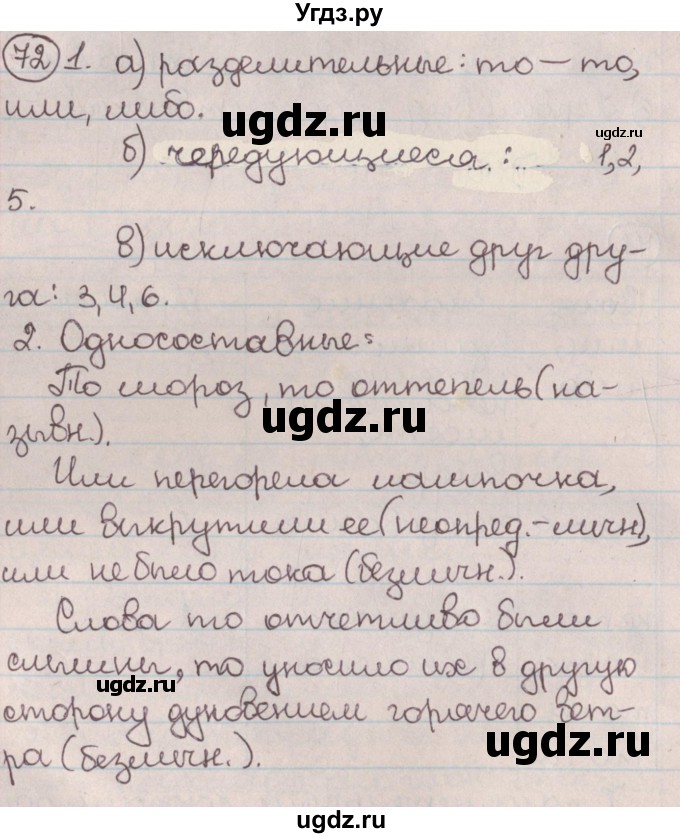 Угдз.ру
72 1. а) разделительные: то – то,
или, либо.
ugdz.ru
ugdz.ru
б) чередующиеся: 1,2,
5.
в) исключающие друг дру-
га: 3,4,6.
2. Односоставные:
То мороз, то оттепель (на-
ugdz.ru
зывн.).
Или перегорела лампочка,
или выкрутили ее (неопред.-личн),
ugdz.ru
или не было тока (безличн.).
Слова то отчетливо были
слышны, то уносило их в другую
ugdz.ru
сторону дуновением горячего вет-
ugdz.ru
ра (безличн.).
ugdz.ru